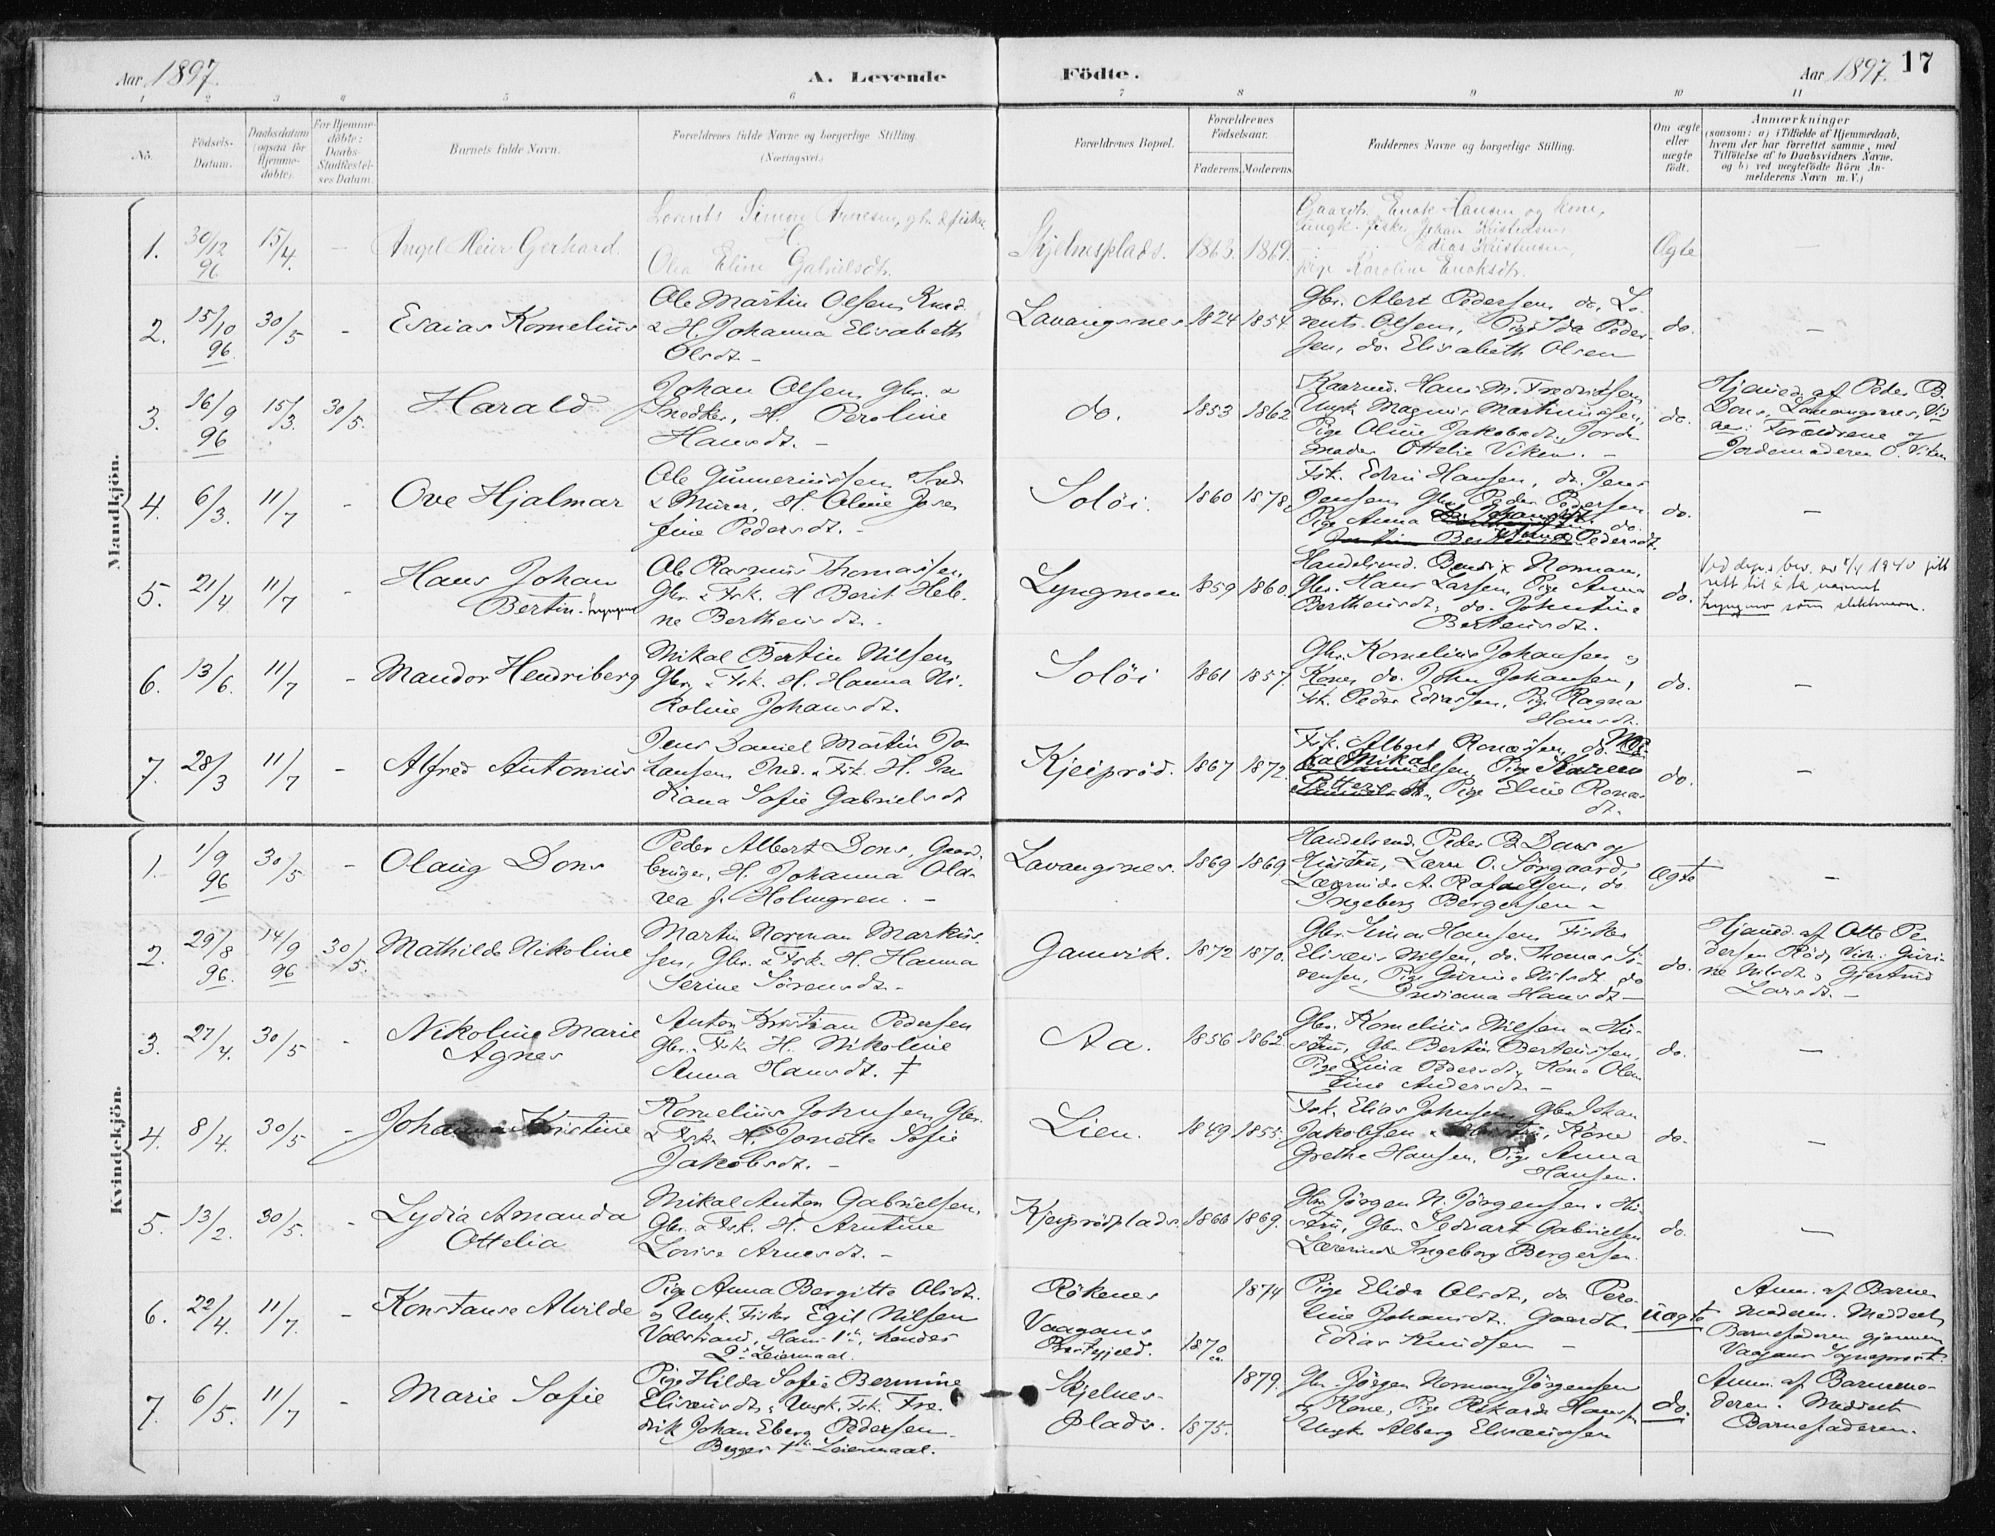 Aar 1897.
A. Levende Födte.
Aar 1897.
17
1 2 3 4 5 6 7 8 9 10 11
No.
Födsels-
Datum.
Daabsdatum
(ogsaa for
Hjemme-
døbte).
For Hjemme-
døbte:
Daabs-
Stadfæstel-
ses Datum.
Barnets fulde Navn.
Forældrenes fulde Navne og borgerlige Stilling.
(Næringsvei.)
Forældrenes Bopæl.
Forældrenes
Födselsaar.
Faderens. Moderens.
Faddernes Navne og borgerlige Stilling.
Om ægte
eller
uægte
født.
Anmærkninger
(saasom: a) i Tilfælde af Hjemmedaab,
hvem der har forrettet samme, med
Tilföielse af to Daabsvidners Navne,
og b) ved uægtefödte Börn An-
melderens Navn m. V.)
Mandkjön.
1. 30/12 96 15/4. – Angel Meier Gerhard.
Lorents Simon Arnesen, gbr. & fisker
H.
Olea Eline Gabrielsdtr.
Skjelnesplads. 1863. 1861.
Gaardbr. Enok Hansen og kone,
Ungk. fisker Johan Kristiansen,
Edias Kristensen,
pige Karoline Enoksdtr.
Ægte –
2. 15/10 96 30/5 - Esaias Kornelius
Ole Martin Olsen,
& H. Johanna Elisabeth
Olsdt. –
Lavangsnes 1824 1854
Gbr. Alert Pedersen, do. Lo-
rents Olsen, Pige Ida Peder-
sen, do. Elisabeth Olsen
do. –
3. 16/9 96 15/3. 30/5. Harald
Johan Olsen, Gbr. &
Snedker, H. Peroline
Hansdt. –
do. 1853 1862
Hans M. Fredriksen,
Ungk. Magnus Martinussen,
Pige Oline Jakobsdt., Jorde-
moder Ottelie Viken. –
do.
Hjemmed. af Peder B.
Dons, Lavangsnes, Vid-
ne: Forældrene og
Jordemoderen O. Viken
4. 6/3. 11/7 - Ove Hjalmar
Ole Gunneriussen,
& Murer, H. Oline Jose-
fine Pedersdt. –
Solöi. 1860 1878.
Fsk. Edvin Hansen, do. Jens
Jensen, Gbr. Peder Pedersen
Pige Anna
Pedersdt.
do. –
5. 21/4. 11/7 - Hans Johan
Bertin. Lyngmo
Ole Rasmus Thomassen,
Gbr. & Fsk. H. Berit Hele-
ne Bertheusdt. –
Lyngmoen 1859 1860.
Handelsmd. Bendix Norman,
Gbr. Hans Larsen, Pige Anna
Bertheusdt., do. Johntine
Berteusdt.
do.
Ved dep. bev. av 1940 gitt
rett til å ta navnet
Lyngmo som slektsnavn.
6. 13/6. 11/7 - Mandor Hendriberg
Mikal Bertin Nilsen,
Gbr. & Fsk. H. Hanna Ni-
koline Johansdt.
Solöi 1861 1857.
Gbr. Kornelius Johansen og
Kone, do. John Johansen,
Fsk. Peder Ediassen, Pige Ragna
Hansdt.
do. –
7. 28/3 11/7 - Alfred Antonius
Jens Daniel Martin Jo-
hansen, Ind. & Fsk. H. In-
diana Sofie Gabrielsdt
Kjeiprød. 1867 1872.
Fsk. Albert
Mikal
Pige Karen
Pige Eline
dt.
do. –
Kvindekjön.
1. 1/9 96 30/5 - Olaug Dons
Peder Albert Dons, Gaard-
bruger, H. Johanna
f. Holmgren. –
Lavangsnes. 1869 1869.
Handelsmd. Peder B. Dons og
Hustru, Lærer O. Sörgaard,
Lærerinde A. Rafaelsen, do.
Ingeborg Bergersen –
Ægte –
2. 29/8 96. 14/9 96 30/5. Mathilde Nikoline
Martin Norman Markus-
sen, Gbr. & Fsk. H. Hanna
Serine Sörensdt. –
Gamvik. 1872 1870.
Gbr. Simon Hansen, Fisker
Eliseus Nilsen, do. Thomas Sö-
rensen, Pige Gurine Nilsdt. do
Indiana Hansdt –
do.
Hjemmed. af Otto Pe-
dersen Röd, Vidn: Guri-
ne Nilsdt. & Gjertrud
Larsdt. –
3. 27/4. 30/5 - Nikoline Marie
Agnes
Anton Kristian Pedersen
Gbr. & Fsk. H. Nikoline
Anna Hansdt. ‡
Aa. 1856 1862.
Gbr. Kornelius Nilsen & Hu-
stru, Gbr. Bertin Berteussen,
Pige Lina Pedersdt., Kone Olen-
tine Andersdt. –
do. –
4. 8/4. 30/5 - Johanna Kristine
Kornelius Johnsen, Gbr.
& Fsk. H. Jonette Sofie
Jakobsdt. –
Lien. 1849 1855.
Fsk. Elias Johnsen, Gbr. Johan
Jakobsen & Hustru, Kone
Grethe Hansen, Pige Anna
Hansen.
do. –
5. 13/2. 30/5. - Lydia Amanda
Ottelia
Mikal Anton Gabrielsen,
Gbr. & Fsk. H. Arntine
Lovise Arnesdt. –
Kjeiprødplads. 1866 1869.
Gbr. Jörgen N. Jörgensen & Hu-
stru, Gbr. Edvart Gabrielsen
Lærerinde Ingeborg Bergersen.
do. –
6. 22/4. 11/7. - Konstanse Alvilde
Pige Anna Bergitte Olsdt.
og Ungk. Fisker Egil Nilsen
Valstrand, Hans 1ste, hendes
2det Leiermaal.
Rökenes
Vaagans
Præstegjeld. 1870 1874
Pige Elida Olsdt., do. Pero-
line Johansdt. Gaardbr.
Edias Knudsen –
uægte
Anm. af Barne-
moderen. Meddelt
Barnefaderen gjennem
Vaagans Sognepræst.
7. 6/5. 11/7 - Marie Sofie
Pige Hilda Sofie Bermine
Eliseusdt. & Ungk. Fsk. Fre-
drik Johan Eberg Pedersen
Begges 1ste Leiermaal.
Skjelnes-
plads. 1875. 1879.
Gbr. Jörgen Norman Jörgensen
og Kone, Pige Rikarda Hansen
Ungk. Alberg Eliseussen
do.
Anm. af Barnemo-
deren. Meddelt
Barnefaderen.